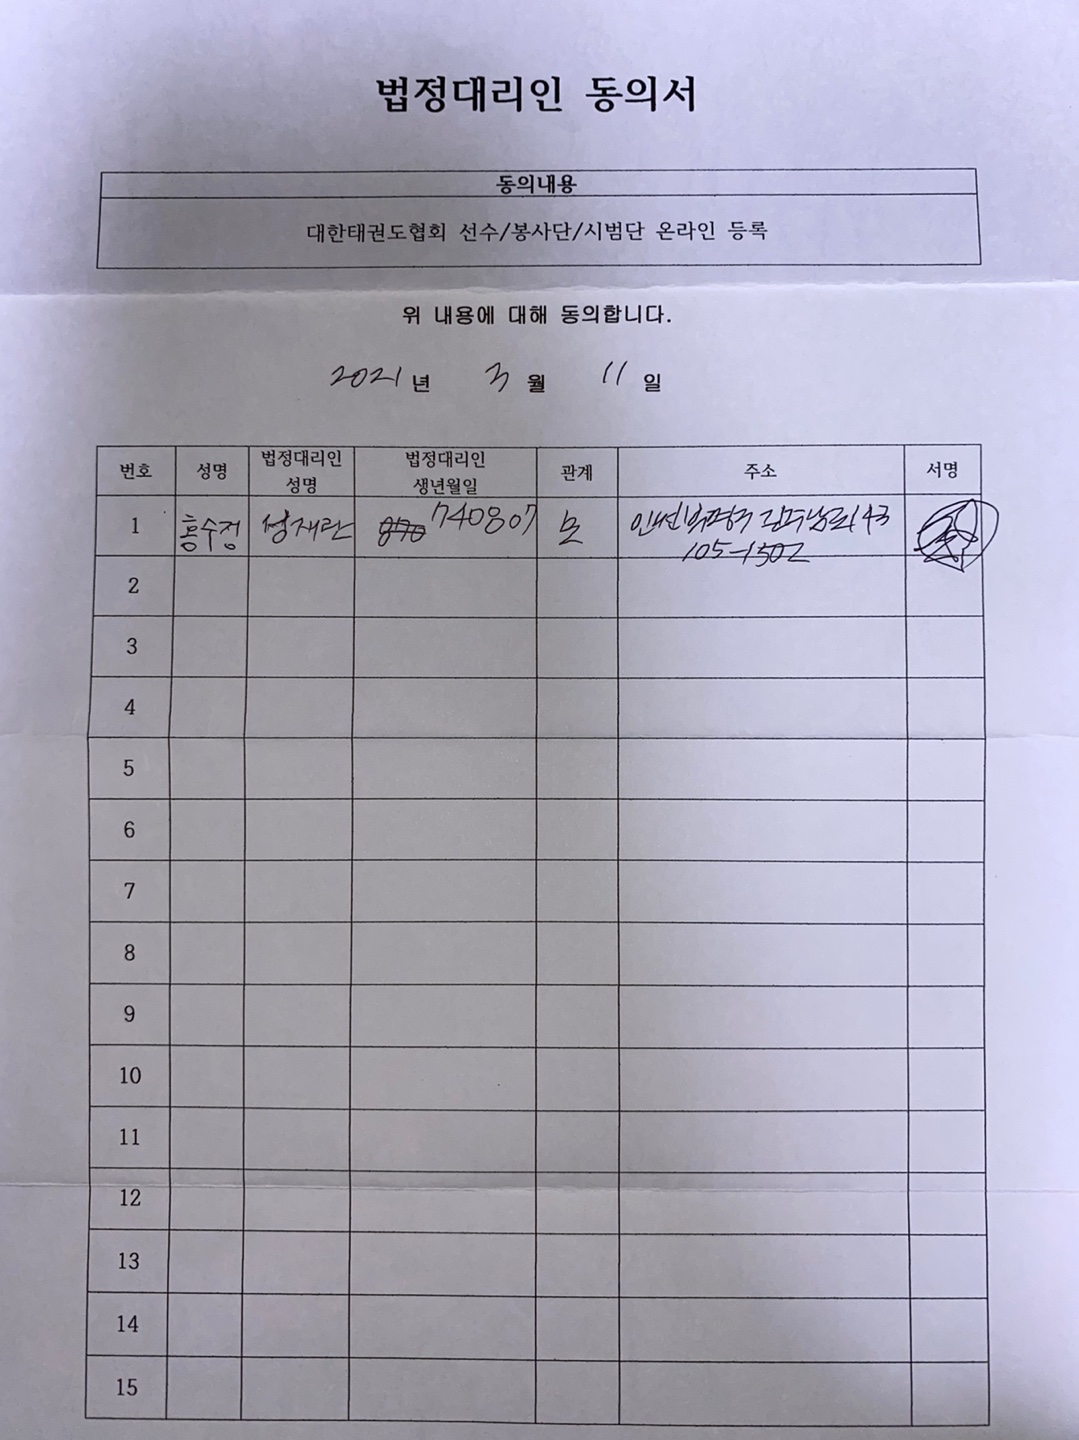 법정대리인 동의서
동의내용
대한태권도협회 선수/봉사단/시범단 온라인 등록
위 내용에 대해 동의합니다.
2021년 3월 11일
번호 성명 법정대리인 성명 법정대리인 생년월일 관계 주소 서명
1 홍수정 성재란 740807 모 인천 부평구 길주남로143
105-1502
2
3
4
5
6
7
8
9
10
11
12
13
14
15